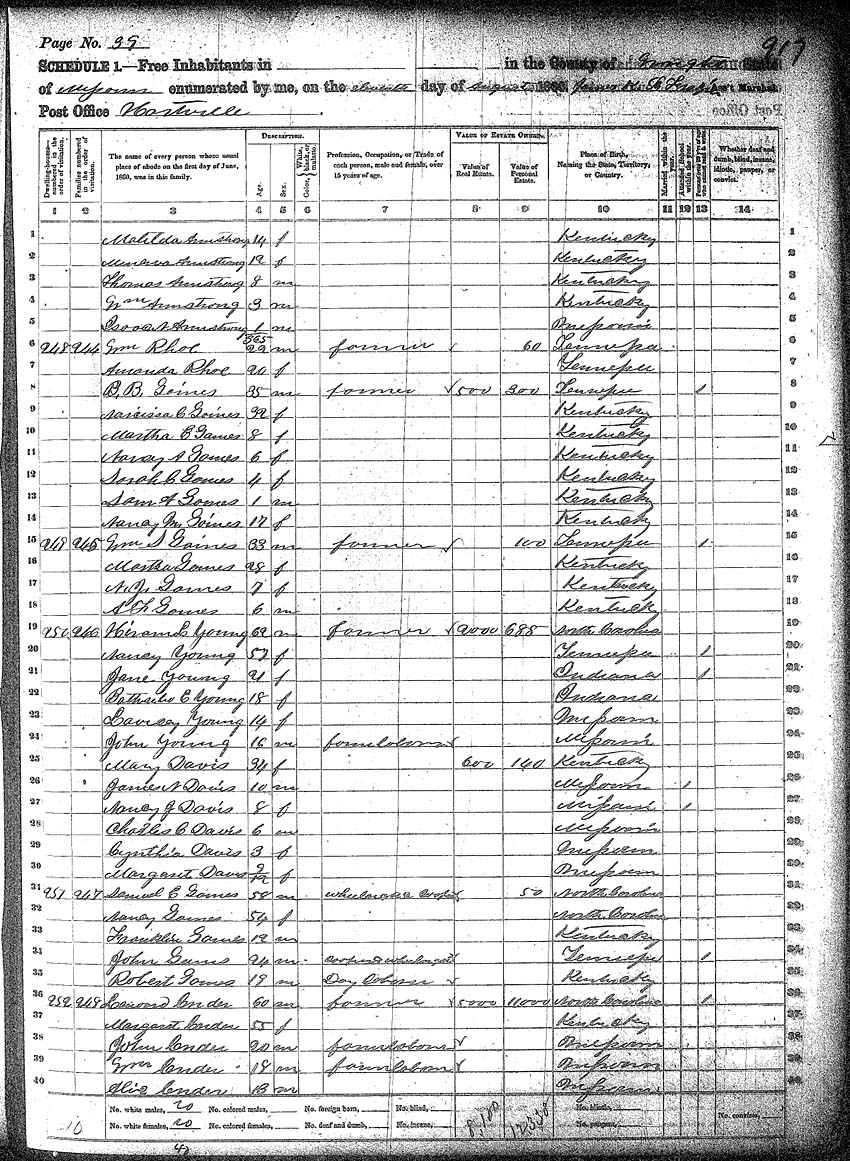 Page No. 39
917
SCHEDULE 1.—Free Inhabitants in in the County of State
of Missouri enumerated by me, on the eleventh day of August 1860. Ass't Marshal.
Post Office Hartville
DESCRIPTION. VALUE OF ESTATE OWNED.
Dwelling-houses— numbered in the order of visitation.
Families numbered in the order of visitation.
The name of every person whose usual place of abode on the first day of June, 1860, was in this family.
Age.
Sex.
Color, White, black, or mulatto.
Profession, Occupation, or Trade of each person, male and female, over 15 years of age.
Value of Real Estate.
Value of Personal Estate.
Place of Birth, Naming the State, Territory, or Country.
Married within the year.
Attended School within the year.
Whether deaf and dumb, blind, insane, idiotic, pauper, or convict.
1 2 3 4 5 6 7 8 9 10 11 12 13 14
1 Matilda Armstrong 14 f Kentucky 1
2 Minerva Armstrong 12 f Kentucky 2
3 Thomas Armstrong 8 m Kentucky 3
4 Wm Armstrong 3 m Kentucky 4
5 Isaac N Armstrong 1 m Missouri 5
6 948 944 Wm Rhoe 22 m farmer 60 Tennessee 6
7 Amanda Rhoe 20 f Tennessee 7
8 B. B. Goines 35 m farmer 500 300 Tennessee 1 8
9 Narcissa C Goines 32 f Kentucky 9
10 Martha E Goines 8 f Kentucky 10
11 Nancy A Goines 6 f Kentucky 11
12 Sarah C Goines 4 f Kentucky 12
13 Sam A Goines 1 m Kentucky 13
14 Nancy M Goines 17 f Kentucky 14
15 949 945 Wm S Goines 33 m farmer 100 Tennessee 1 15
16 Martha Goines 28 f Kentucky 16
17 N. J. Goines 7 f Kentucky 17
18 A Th Goines 6 m Kentuck 18
19 950 946 Hiram E Young 62 m farmer 2000 688 North Carolina 19
20 Nancy Young 57 f Tennessee 1 20
21 Jane Young 21 f Indiana 1 21
22 Bathsheba E Young 18 f Indiana 22
23 Lavisay Young 14 f Missouri 23
24 John Young 16 m farmlaborer Missouri 24
25 Mary Davis 34 f 600 140 Kentucky 25
26 James N Davis 10 m Missouri 1 26
27 Nancy J Davis 8 f Missouri 1 27
28 Charles C Davis 6 m Missouri 28
29 Cynthia Davis 3 f Missouri 29
30 Margaret Davis 9/12 f Missouri 30
31 951 947 Samuel E Goines 58 m wheelwright & Cooper 50 North Carolina 31
32 Nancy Goines 54 f North Carolina 32
33 Franklin Goines 12 m Kentucky 33
34 John Goins 24 m cooper & wheelwright Tennessee 1 34
35 Robert Goines 19 m Day Laborer Kentucky 35
36 952 948 60 m farmer 5000 11000 North Carolina 1 36
37 Margaret 55 f Kentucky 37
38 John 20 m farmlaborer Missouri 38
39 Wm 18 m farmlaborer Missouri 39
40 13 m Missouri 40
No. white males, 20 No. colored males, No. foreign born, No. blind, No. idiotic,
No. white females, 20 No. colored females, No. deaf and dumb, No. insane, No. paupers, No. convicts,
8,100 12338
10